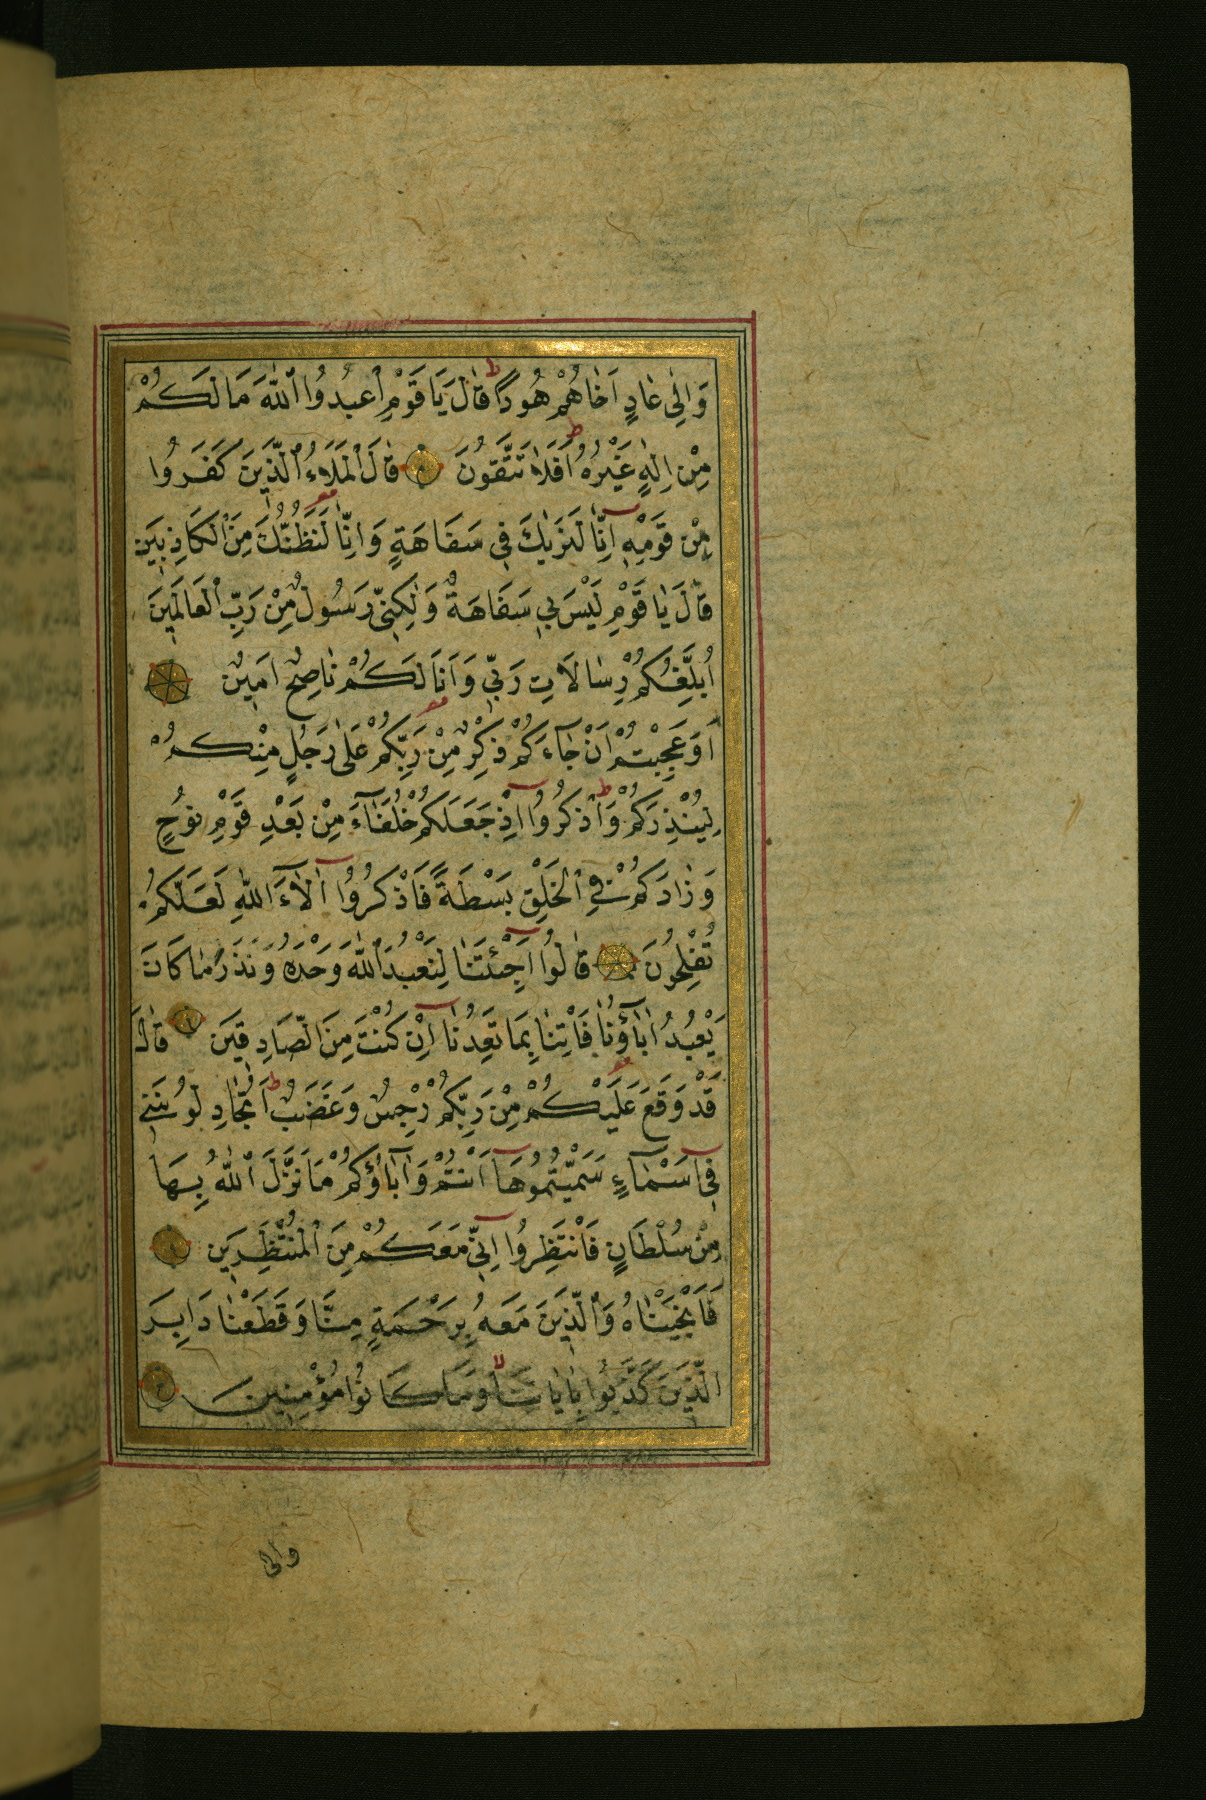 وَاِلٰى عَادٍ اَخَاهُمْ هُودًا ط قَالَ يَا قَوْمِ اعْبُدُوا اللّٰهَ مَالَكُمْ
مِنْ اِلٰهٍ غَيْرُهُ ط اَفَلَا تَتَّقُونَ قَالَ الْمَلَاءُ الَّذِينَ كَفَرُوا
مِنْ قَوْمِهِ اِنَّا لَنَرٰيكَ فِي سَفَاهَةٍ وَاِنَّا لَنَظُنُّكَ مِنَ الْكَاذِبِينَ
قَالَ يَا قَوْمِ لَيْسَ بِي سَفَاهَةٌ وَلٰكِنِّي رَسُولٌ مِنْ رَبِّ الْعَالَمِينَ
اُبَلِّغُكُمْ رِسَالَاتِ رَبِّي وَاَنَا لَكُمْ نَاصِحٌ اَمِينٌ
اَوَعَجِبْتُمْ اَنْ جَاءَكُمْ ذِكْرٌ مِنْ رَبِّكُمْ عَلٰى رَجُلٍ مِنْكُمْ
لِيُنْذِرَكُمْ ط وَاذْكُرُوا اِذْ جَعَلَكُمْ خُلَفَاءَ مِنْ بَعْدِ قَوْمِ نُوحٍ
وَزَادَكُمْ فِي الْخَلْقِ بَسْطَةً فَاذْكُرُوا اٰلَاءَ اللّٰهِ لَعَلَّكُمْ
تُفْلِحُونَ قَالُوا اَجِئْتَنَا لِنَعْبُدَ اللّٰهَ وَحْدَهُ وَنَذَرَ مَا كَانَ
يَعْبُدُ اٰبَاؤُنَا فَاْتِنَا بِمَا تَعِدُنَا اِنْ كُنْتَ مِنَ الصَّادِقِينَ قَالَ
قَدْ وَقَعَ عَلَيْكُمْ مِنْ رَبِّكُمْ رِجْسٌ وَغَضَبٌ ط اَتُجَادِلُونَنِي
فِي اَسْمَاءٍ سَمَّيْتُمُوهَا اَنْتُمْ وَاٰبَاؤُكُمْ مَا نَزَّلَ اللّٰهُ بِهَا
مِنْ سُلْطَانٍ فَانْتَظِرُوا اِنِّي مَعَكُمْ مِنَ الْمُنْتَظِرِينَ
فَاَنْجَيْنَاهُ وَالَّذِينَ مَعَهُ بِرَحْمَةٍ مِنَّا وَقَطَعْنَا دَابِرَ
الَّذِينَ كَذَّبُوا بِاٰيَاتِنَا لا وَمَا كَانُوا مُؤْمِنِينَ
والى